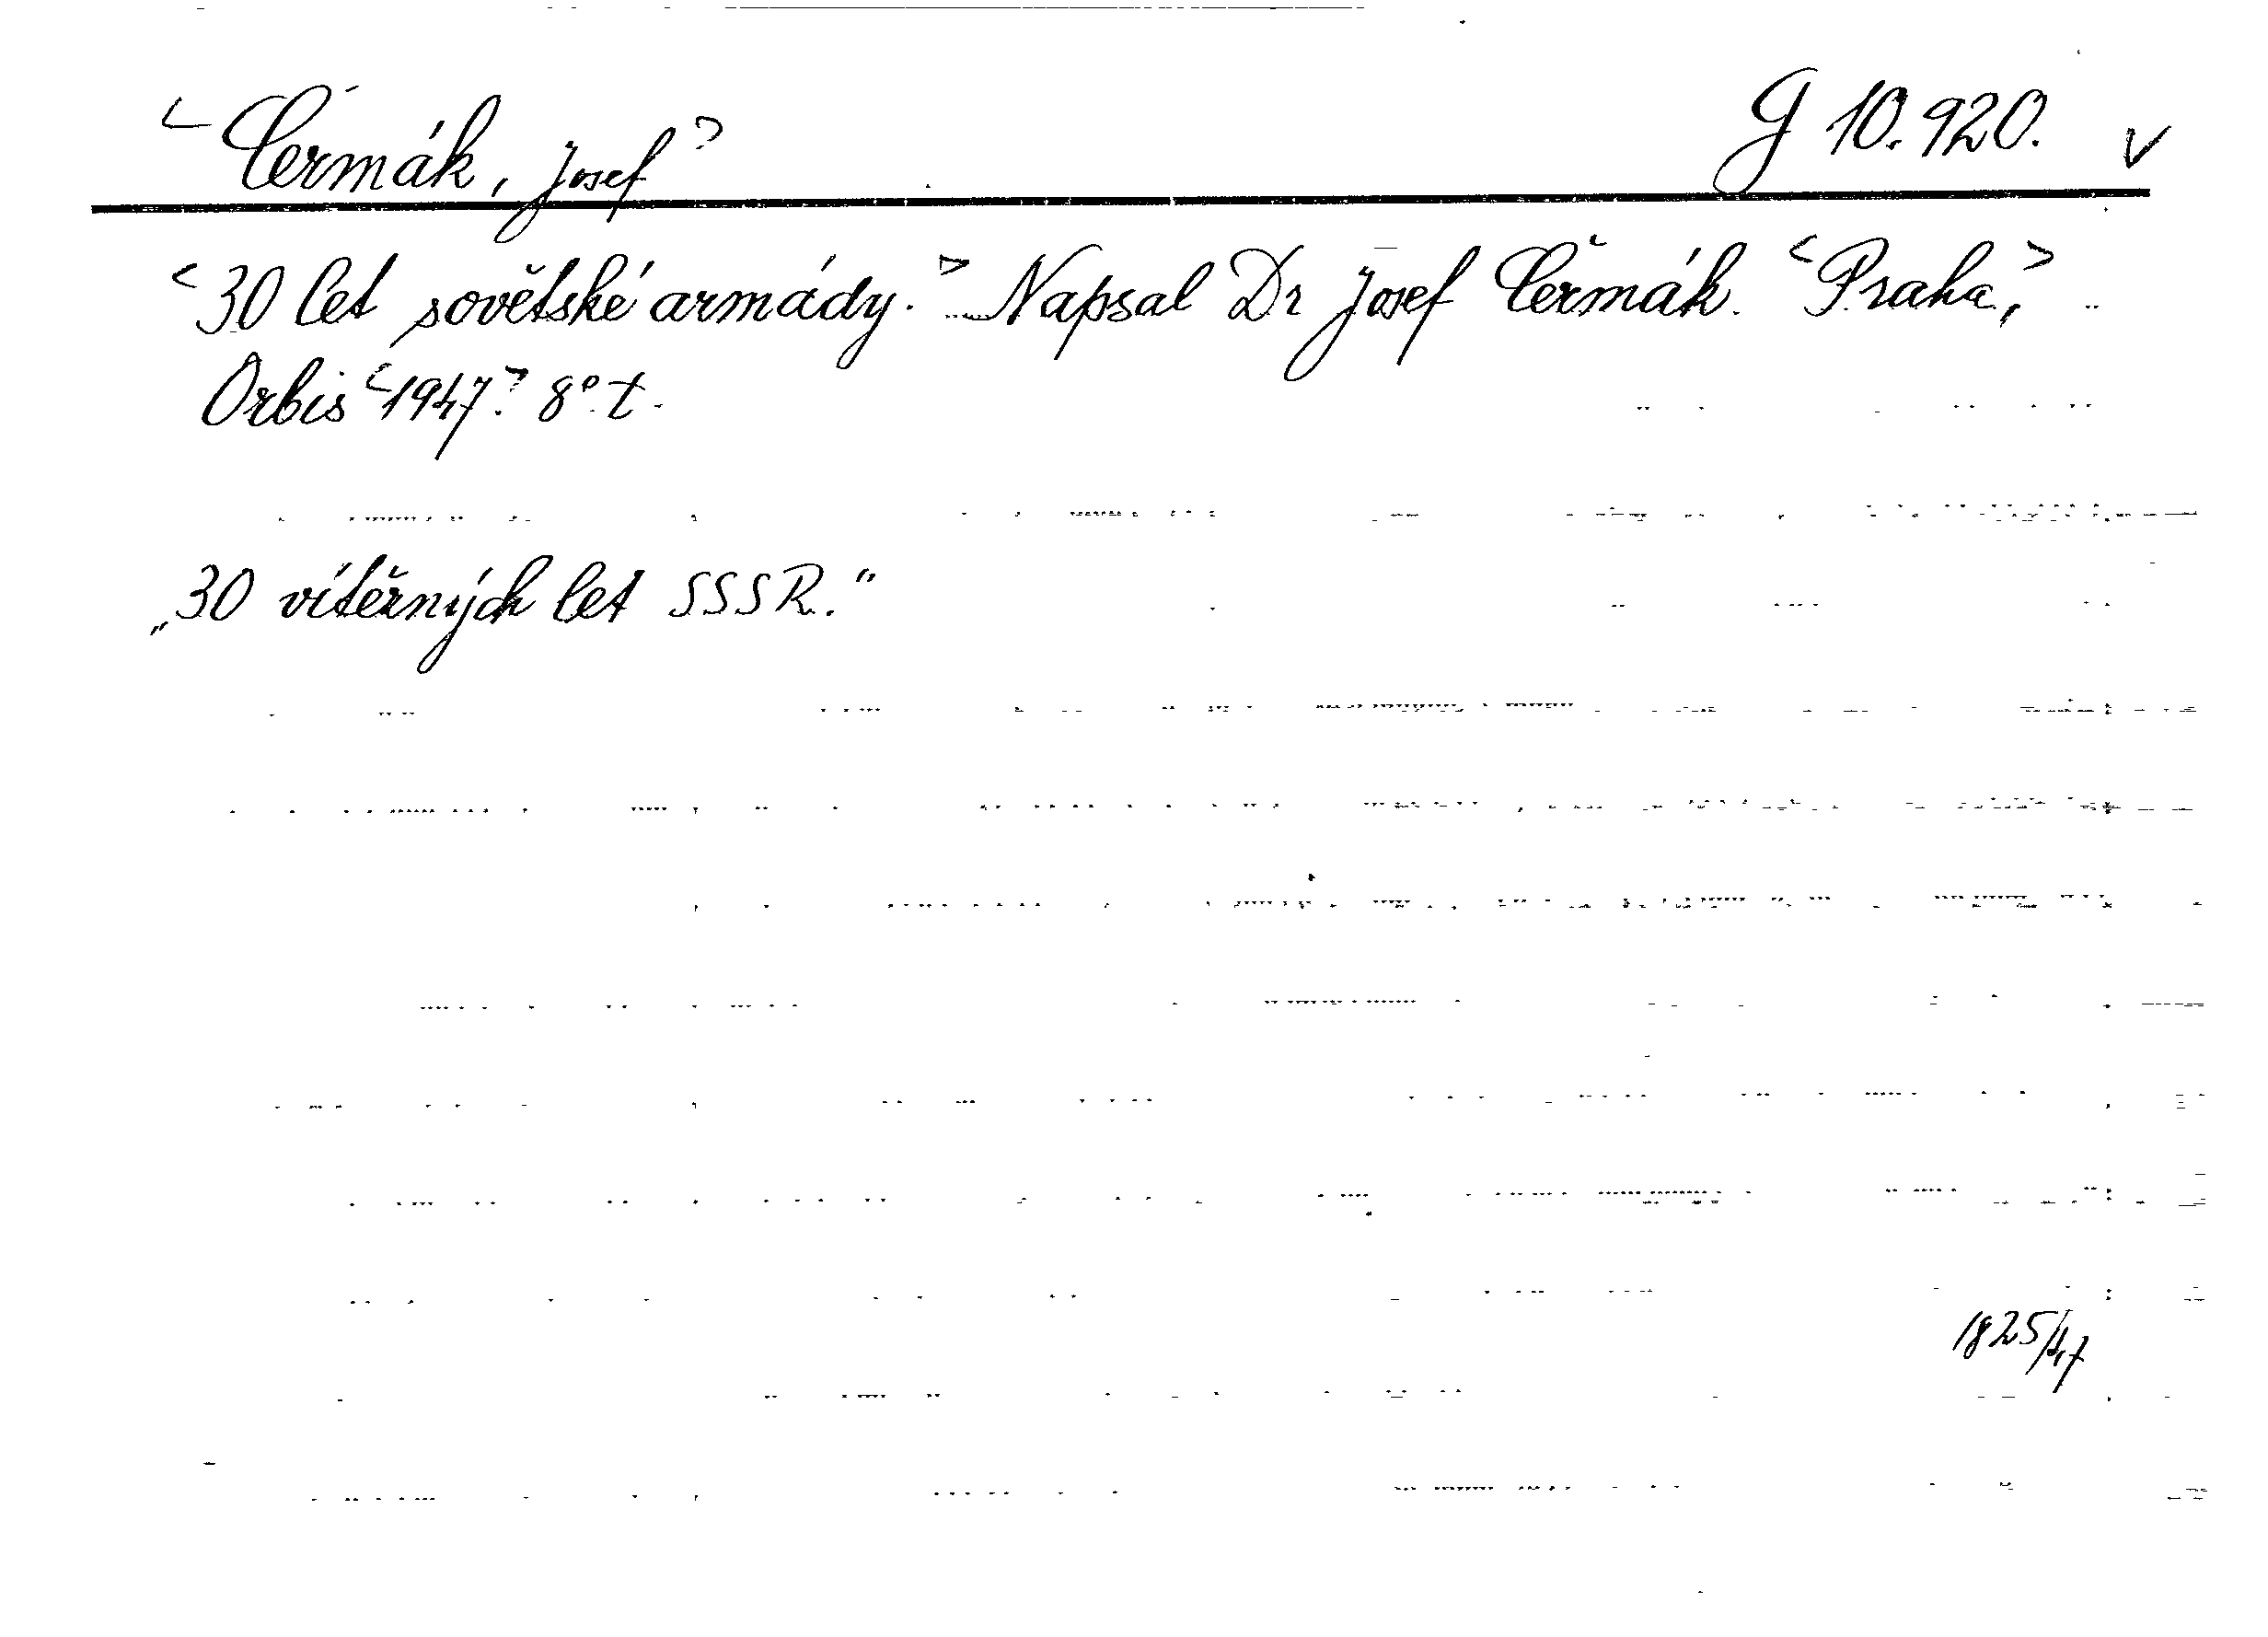 <Čermák, Josef> G 10.920. v
<30 let sovětské armády.> Napsal Dr Josef Čermák. <Praha,>
Orbis <1947.> 8° t.
„30 vítěrných let SSSR.“
1825/47